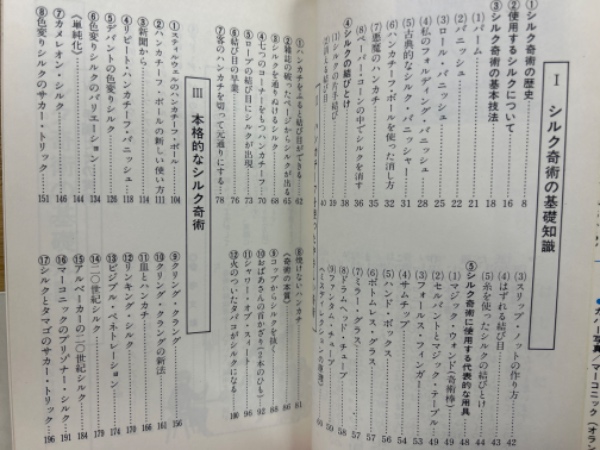 I シルク奇術の基礎知識
①シルク奇術の歴史 8
②使用するシルクについて 16
③シルク奇術の基本技法 18
(1)バニッシュ 21
(2)バニッシュ 22
(3)ロール・バニッシュ 25
(4)私のフォルディング・バニッシュ 28
(5)古典的なシルク・バニッシャー 31
(6)ハンカチーフ・ボールを使った消し方 32
(7)悪魔のハンカチ 35
(8)ペーパー・コーンの中でシルクを消す 36
④シルクの結びとけ 38
(1)シルクの片手結び 39
40
(3)スリップ・ノットの作り方 42
(4)はずれる結び目 43
(5)糸を使ったシルクの結びとけ 44
⑤シルク奇術に使用する代表的な用具 48
(1)マジック・ウォンド(奇術棒) 48
(2)セルバントとマジック・テーブル 49
(3)フォールス・フィンガー 53
(4)サムチップ 54
(5)ハンド・ボックス
(6)ボトムレス・グラス
(7)ミラー・グラス
(8)ドラムヘッド・チューブ
(9)ファンタム・チューブ
①ハンカチをふると結び目ができる 62
②雑誌の破ったページからシルクが出る 65
③シルクを通りぬけるシルク 68
④七つのコーナーをもつハンカチーフ 70
⑤ロープの結び目にシルクが出現 73
⑥結び目の早業 76
⑦客のハンカチを切って元通りにする 78
⑧焼けないハンカチ 81
〈奇術の本質〉 86
⑨コップからシルクを抜く 88
⑩おばあさんの首かざり(2本のひも) 92
⑪シャワー・オブ・スィート 96
⑫火のついたタバコがシルクになる 100
III 本格的なシルク奇術
①スティルウェルのハンカチーフ・ボール 104
②ハンカチーフ・ボールの新しい使い方 111
③新聞から 114
④リピート・ハンカチーフ・バニッシュ 118
⑤デバントの色変りシルク 126
⑥色変りシルクのバリエーション 134
〈単純化〉 144
⑦カメレオン・シルク 146
⑧色変りシルクのサカー・トリック 151
⑨クリング・クラング 156
⑩クリング・クラングの新法 161
⑪皿とハンカチ 166
⑫リンキング・シルク 170
⑬ビジブル・ペネトレーション 174
⑭二〇世紀シルク 177
⑮アルベーカーの二〇世紀シルク 179
⑯マーコニックのプリゾナー・シルク 184
191
⑰シルクとタマゴのサカー・トリック 196
カバー写真/マーコニック(オラン